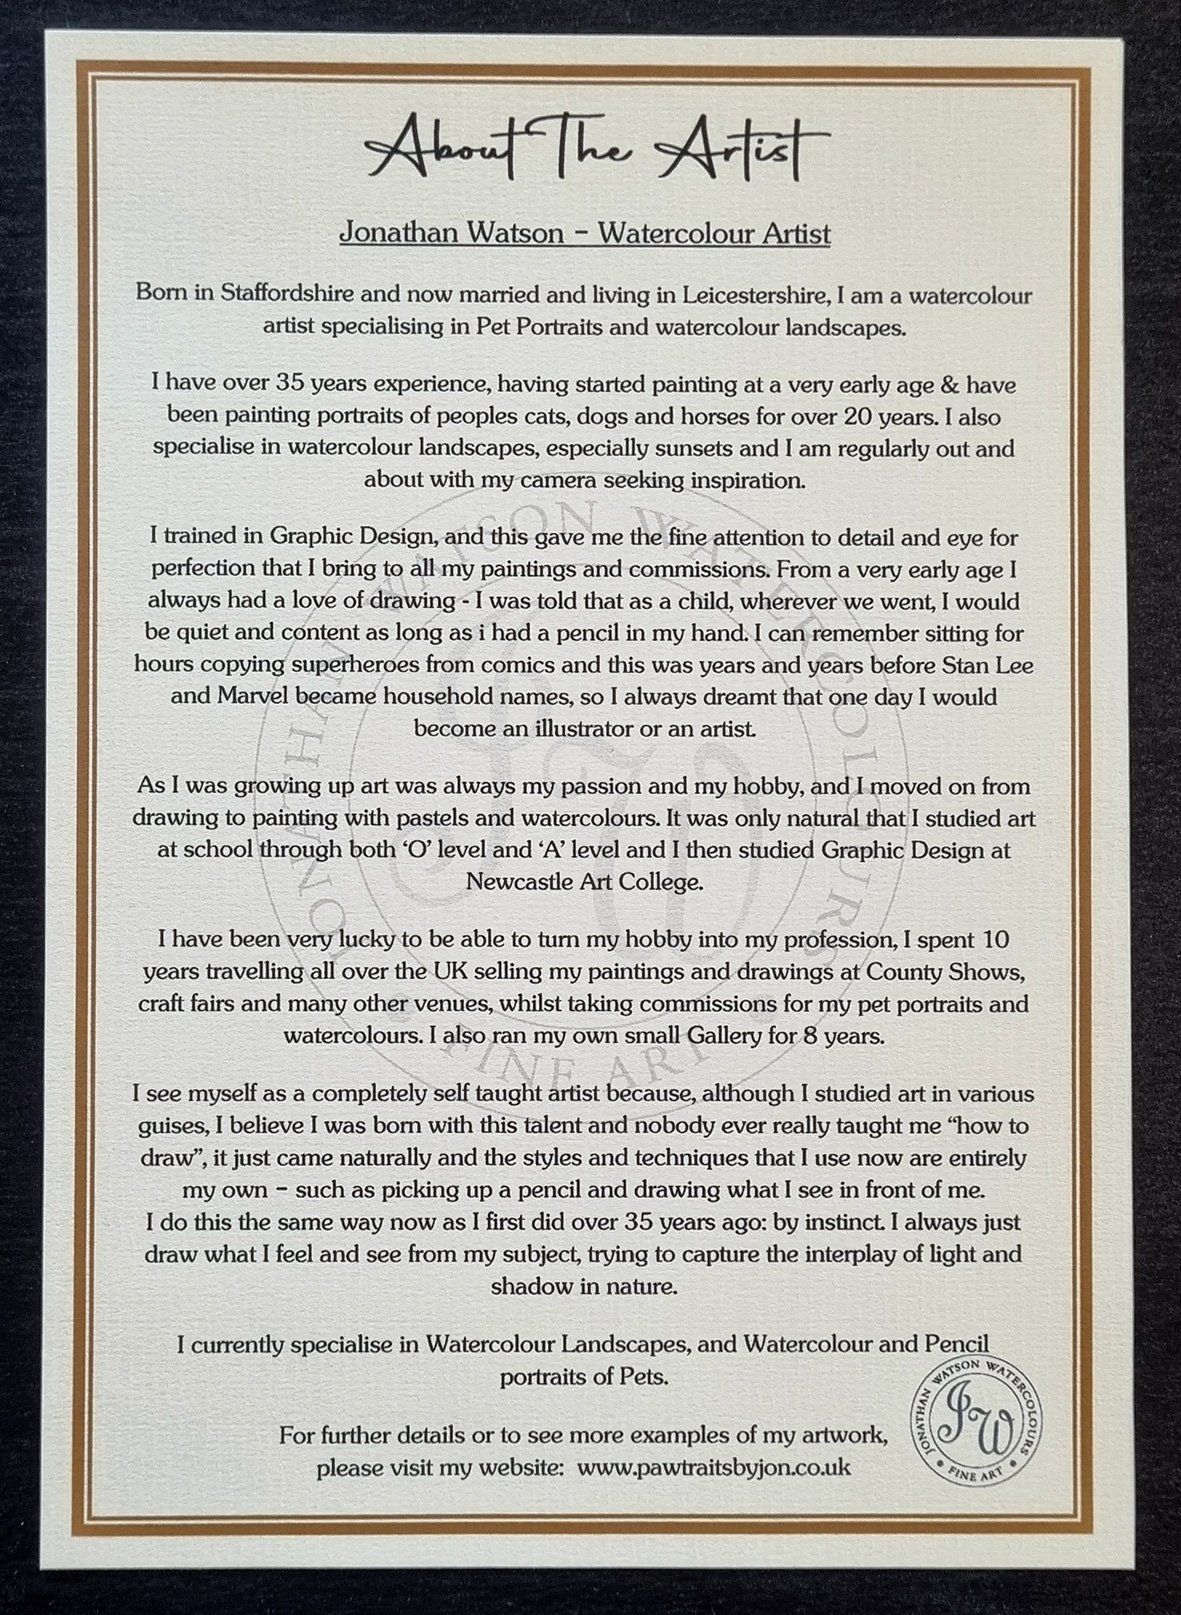 About The Artist
Jonathan Watson – Watercolour Artist
Born in Staffordshire and now married and living in Leicestershire, I am a watercolour
artist specialising in Pet Portraits and watercolour landscapes.
I have over 35 years experience, having started painting at a very early age & have
been painting portraits of peoples cats, dogs and horses for over 20 years. I also
specialise in watercolour landscapes, especially sunsets and I am regularly out and
about with my camera seeking inspiration.
I trained in Graphic Design, and this gave me the fine attention to detail and eye for
perfection that I bring to all my paintings and commissions. From a very early age I
always had a love of drawing - I was told that as a child, wherever we went, I would
be quiet and content as long as i had a pencil in my hand. I can remember sitting for
hours copying superheroes from comics and this was years and years before Stan Lee
and Marvel became household names, so I always dreamt that one day I would
become an illustrator or an artist.
As I was growing up art was always my passion and my hobby, and I moved on from
drawing to painting with pastels and watercolours. It was only natural that I studied art
at school through both ‘O’ level and ‘A’ level and I then studied Graphic Design at
Newcastle Art College.
I have been very lucky to be able to turn my hobby into my profession, I spent 10
years travelling all over the UK selling my paintings and drawings at County Shows,
craft fairs and many other venues, whilst taking commissions for my pet portraits and
watercolours. I also ran my own small Gallery for 8 years.
I see myself as a completely self taught artist because, although I studied art in various
guises, I believe I was born with this talent and nobody ever really taught me “how to
draw”, it just came naturally and the styles and techniques that I use now are entirely
my own – such as picking up a pencil and drawing what I see in front of me.
I do this the same way now as I first did over 35 years ago: by instinct. I always just
draw what I feel and see from my subject, trying to capture the interplay of light and
shadow in nature.
I currently specialise in Watercolour Landscapes, and Watercolour and Pencil
portraits of Pets.
For further details or to see more examples of my artwork,
please visit my website: www.pawtraitsbyjon.co.uk
JONATHAN WATSON WATERCOLOURS
JW
• FINE ART •
JONATHAN WATSON WATERCOLOURS
JW
FINE ART